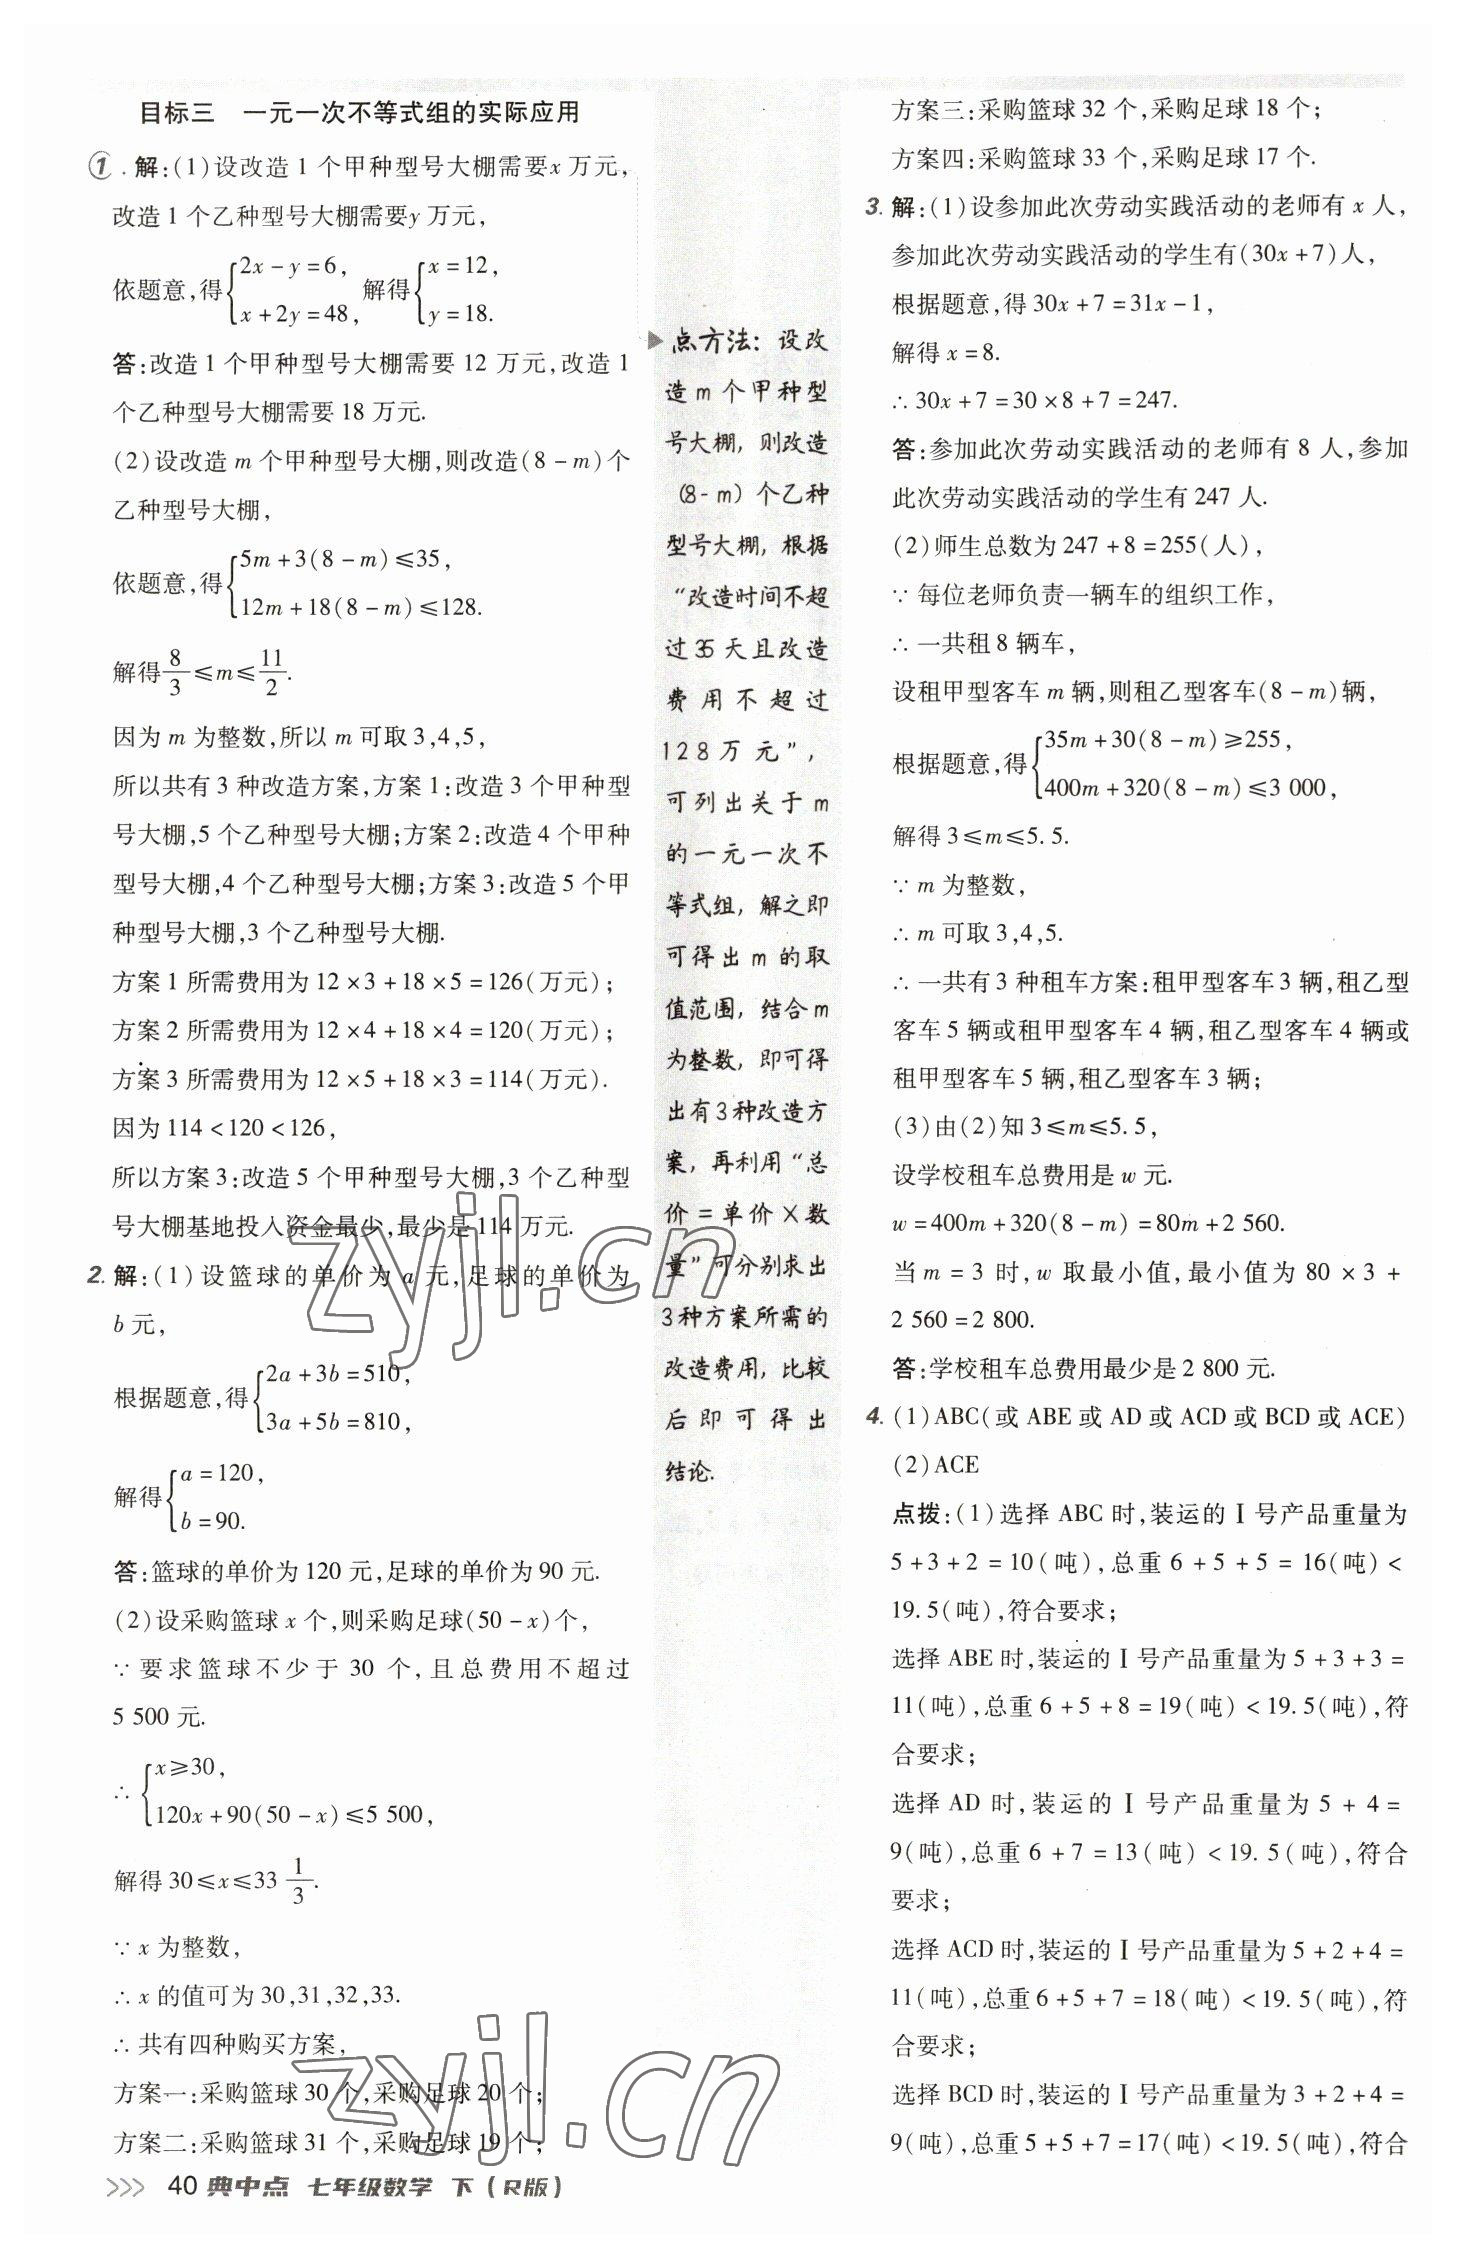 目标三 一元一次不等式组的实际应用
1.解:(1)设改造 1 个甲种型号大棚需要x 万元,
改造 1 个乙种型号大棚需要y 万元,
依题意,得{2x-y=6, x+2y=48, 解得{x=12, y=18.
答:改造 1 个甲种型号大棚需要 12 万元,改造 1
个乙种型号大棚需要 18 万元.
(2)设改造 m 个甲种型号大棚,则改造(8-m)个
乙种型号大棚,
依题意,得{5m+3(8-m)≤35, 12m+18(8-m)≤128.
解得8/3≤m≤11/2.
因为 m 为整数,所以 m 可取 3,4,5,
所以共有 3 种改造方案,方案 1:改造 3 个甲种型
号大棚,5 个乙种型号大棚;方案 2:改造 4 个甲种
型号大棚,4 个乙种型号大棚;方案 3:改造 5 个甲
种型号大棚,3 个乙种型号大棚.
方案 1 所需费用为 12×3+18×5=126(万元);
方案 2 所需费用为 12×4+18×4=120(万元);
方案 3 所需费用为 12×5+18×3=114(万元).
因为 114<120<126,
所以方案 3:改造 5 个甲种型号大棚,3 个乙种型
号大棚基地投入资金最少,最少是 114 万元.
2.解:(1)设篮球的单价为 a 元,足球的单价为
b 元,
根据题意,得{2a+3b=510, 3a+5b=810,
解得{a=120, b=90.
答:篮球的单价为 120 元,足球的单价为 90 元.
(2)设采购篮球 x 个,则采购足球(50-x)个,
∵要求篮球不少于 30 个,且总费用不超过
5 500 元.
∴{x≥30, 120x+90(50-x)≤5 500,
解得 30≤x≤33 1/3.
∵x 为整数,
∴x 的值可为 30,31,32,33.
∴共有四种购买方案,
方案一:采购篮球 30 个,采购足球 20 个;
方案二:采购篮球 31 个,采购足球 19 个;
点方法:设改
造 m 个甲种型
号大棚,则改造
(8-m)个乙种
型号大棚,根据
“改造时间不超
过 35 天且改造
费用不超过
128万元”,
可列出关于 m
的一元一次不
等式组,解之即
可得出 m 的取
值范围,结合 m
为整数,即可得
出有 3 种改造方
案,再利用“总
价=单价×数
量”可分别求出
3 种方案所需的
改造费用,比较
后即可得出
结论.
方案三:采购篮球 32 个,采购足球 18 个;
方案四:采购篮球 33 个,采购足球 17 个.
3.解:(1)设参加此次劳动实践活动的老师有 x 人,
参加此次劳动实践活动的学生有(30x+7)人,
根据题意,得 30x+7=31x-1,
解得 x=8.
∴30x+7=30×8+7=247.
答:参加此次劳动实践活动的老师有 8 人,参加
此次劳动实践活动的学生有 247 人.
(2)师生总数为 247+8=255(人),
∵每位老师负责一辆车的组织工作,
∴一共租 8 辆车,
设租甲型客车 m 辆,则租乙型客车(8-m)辆,
根据题意,得{35m+30(8-m)≥255, 400m+320(8-m)≤3 000,
解得 3≤m≤5.5.
∵m 为整数,
∴m 可取 3,4,5.
∴一共有 3 种租车方案:租甲型客车 3 辆,租乙型
客车 5 辆或租甲型客车 4 辆,租乙型客车 4 辆或
租甲型客车 5 辆,租乙型客车 3 辆;
(3)由(2)知 3≤m≤5.5,
设学校租车总费用是 w 元.
w=400m+320(8-m)=80m+2 560.
当 m=3 时,w 取最小值,最小值为 80×3+
2 560=2 800.
答:学校租车总费用最少是 2 800 元.
4.(1)ABC(或 ABE 或 AD 或 ACD 或 BCD 或 ACE)
(2)ACE
点拨:(1)选择 ABC 时,装运的Ⅰ号产品重量为
5+3+2=10(吨),总重 6+5+5=16(吨)<
19.5(吨),符合要求;
选择 ABE 时,装运的Ⅰ号产品重量为 5+3+3=
11(吨),总重 6+5+8=19(吨)<19.5(吨),符
合要求;
选择 AD 时,装运的Ⅰ号产品重量为 5+4=
9(吨),总重 6+7=13(吨)<19.5(吨),符合
要求;
选择 ACD 时,装运的Ⅰ号产品重量为 5+2+4=
11(吨),总重 6+5+7=18(吨)<19.5(吨),符
合要求;
选择 BCD 时,装运的Ⅰ号产品重量为 3+2+4=
9(吨),总重 5+5+7=17(吨)<19.5(吨),符合
40 典中点 七年级数学 下(R版)
zyjl.cn
zyjl.cn